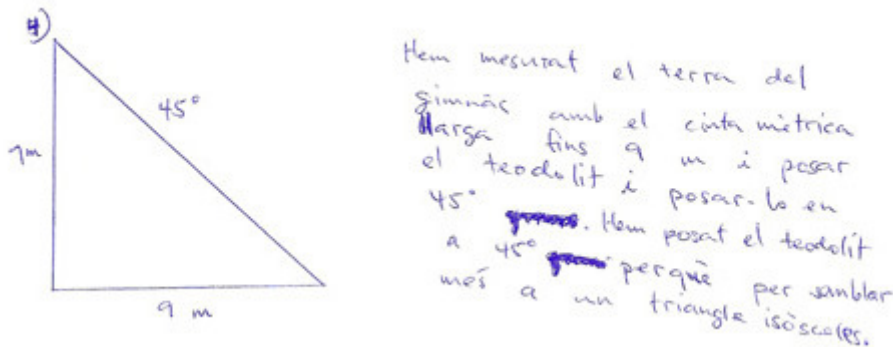 4)
45°
9m
9 m
Hem mesurat el terra del
gimnàs amb el cinta mètrica
llarga fins 9 m i posar
el teodolit i posar-lo en
45°. Hem posat el teodolit
a 45° perquè per semblar
més a un triangle isòsceles.